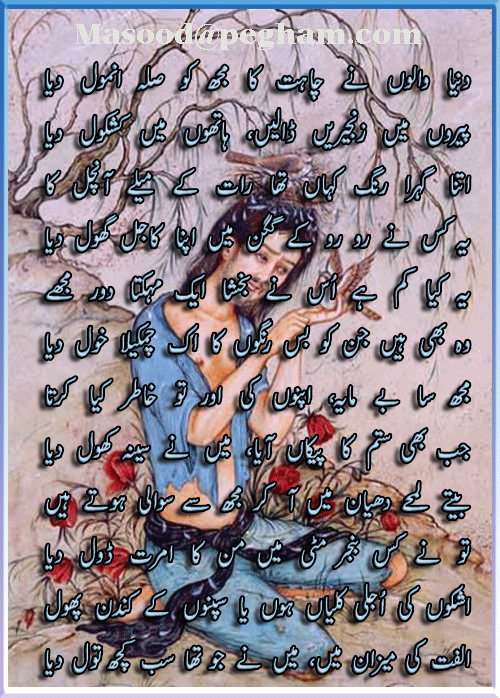 Masood@pegham.com
دنیا والوں نے چاہت کا مجھ کو صلہ انمول دیا
پیروں میں زنجیریں ڈالیں، ہاتھوں میں کشکول دیا
اتنا گہرا رنگ کہاں تھا رات کے میلے آنچل کا
یہ کس نے رو رو کے گگن میں اپنا کاجل گھول دیا
یہ کیا کم ہے اُس نے بخشا ایک مہکتا درد مجھے
وہ بھی ہیں جن کو بس رنگوں کا اک چمکیلا خول دیا
مجھ سا بے مایہ، اپنوں کی اور تو خاطر کیا کرتا
جب بھی ستم کا پیکاں آیا، میں نے سینہ کھول دیا
بیتے لمحے دھیان میں آ کر مجھ سے سوالی ہوتے ہیں
تو نے کس بنجر مٹی میں من کا امرت ڈول دیا
اشکوں کی اُجلی کلیاں ہوں یا سپنوں کے کندن پھول
الفت کی میزان میں، میں نے جو تھا سب کچھ تول دیا